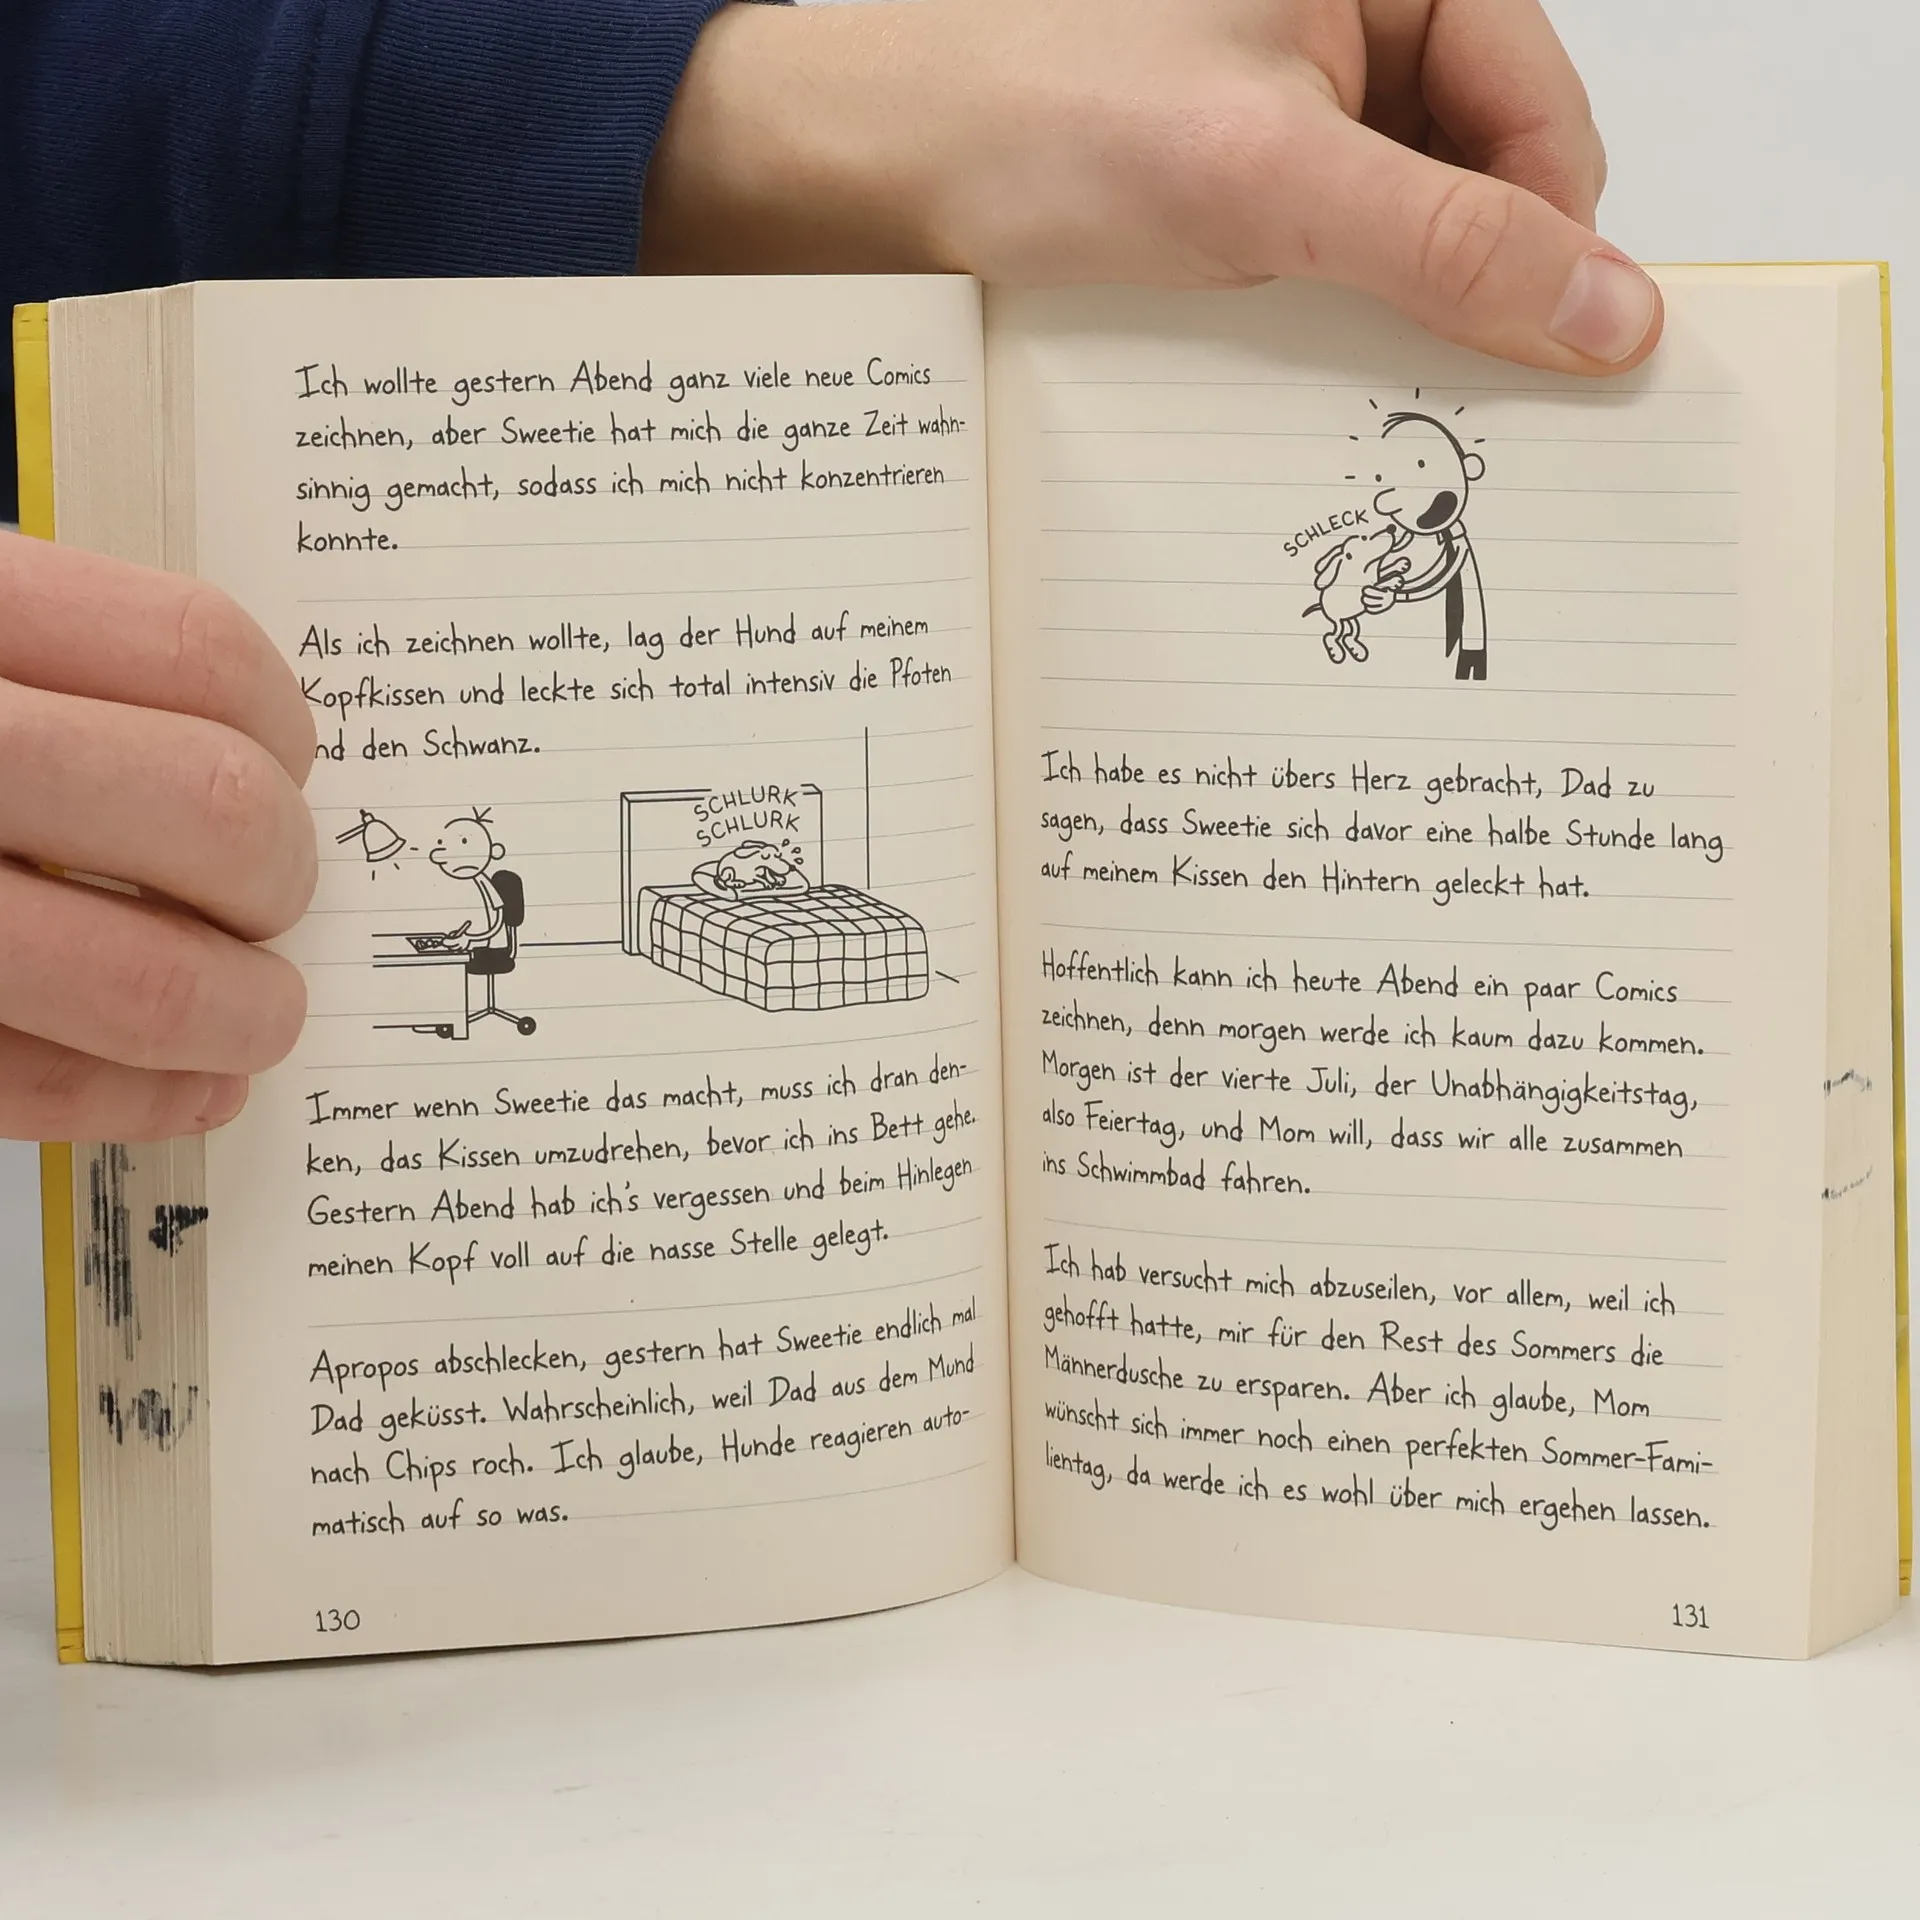 Ich wollte gestern Abend ganz viele neue Comics
zeichnen, aber Sweetie hat mich die ganze Zeit wahn-
sinnig gemacht, sodass ich mich nicht konzentrieren
konnte.
Als ich zeichnen wollte, lag der Hund auf meinem
Kopfkissen und leckte sich total intensiv die Pfoten
nd den Schwanz.
SCHLURK
SCHLURK
Immer wenn Sweetie das macht, muss ich dran den-
ken, das Kissen umzudrehen, bevor ich ins Bett gehe.
Gestern Abend hab ich's vergessen und beim Hinlegen
meinen Kopf voll auf die nasse Stelle gelegt.
Apropos abschlecken, gestern hat Sweetie endlich mal
Dad geküsst. Wahrscheinlich, weil Dad aus dem Mund
nach Chips roch. Ich glaube, Hunde reagieren auto-
matisch auf so was.
130
SCHLECK
Ich habe es nicht übers Herz gebracht, Dad zu
sagen, dass Sweetie sich davor eine halbe Stunde lang
auf meinem Kissen den Hintern geleckt hat.
Hoffentlich kann ich heute Abend ein paar Comics
zeichnen, denn morgen werde ich kaum dazu kommen.
Morgen ist der vierte Juli, der Unabhängigkeitstag,
also Feiertag, und Mom will, dass wir alle zusammen
ins Schwimmbad fahren.
Ich hab versucht mich abzuseilen, vor allem, weil ich
gehofft hatte, mir für den Rest des Sommers die
Männerdusche zu ersparen. Aber ich glaube, Mom
wünscht sich immer noch einen perfekten Sommer-Fami-
lientag, da werde ich es wohl über mich ergehen lassen.
131